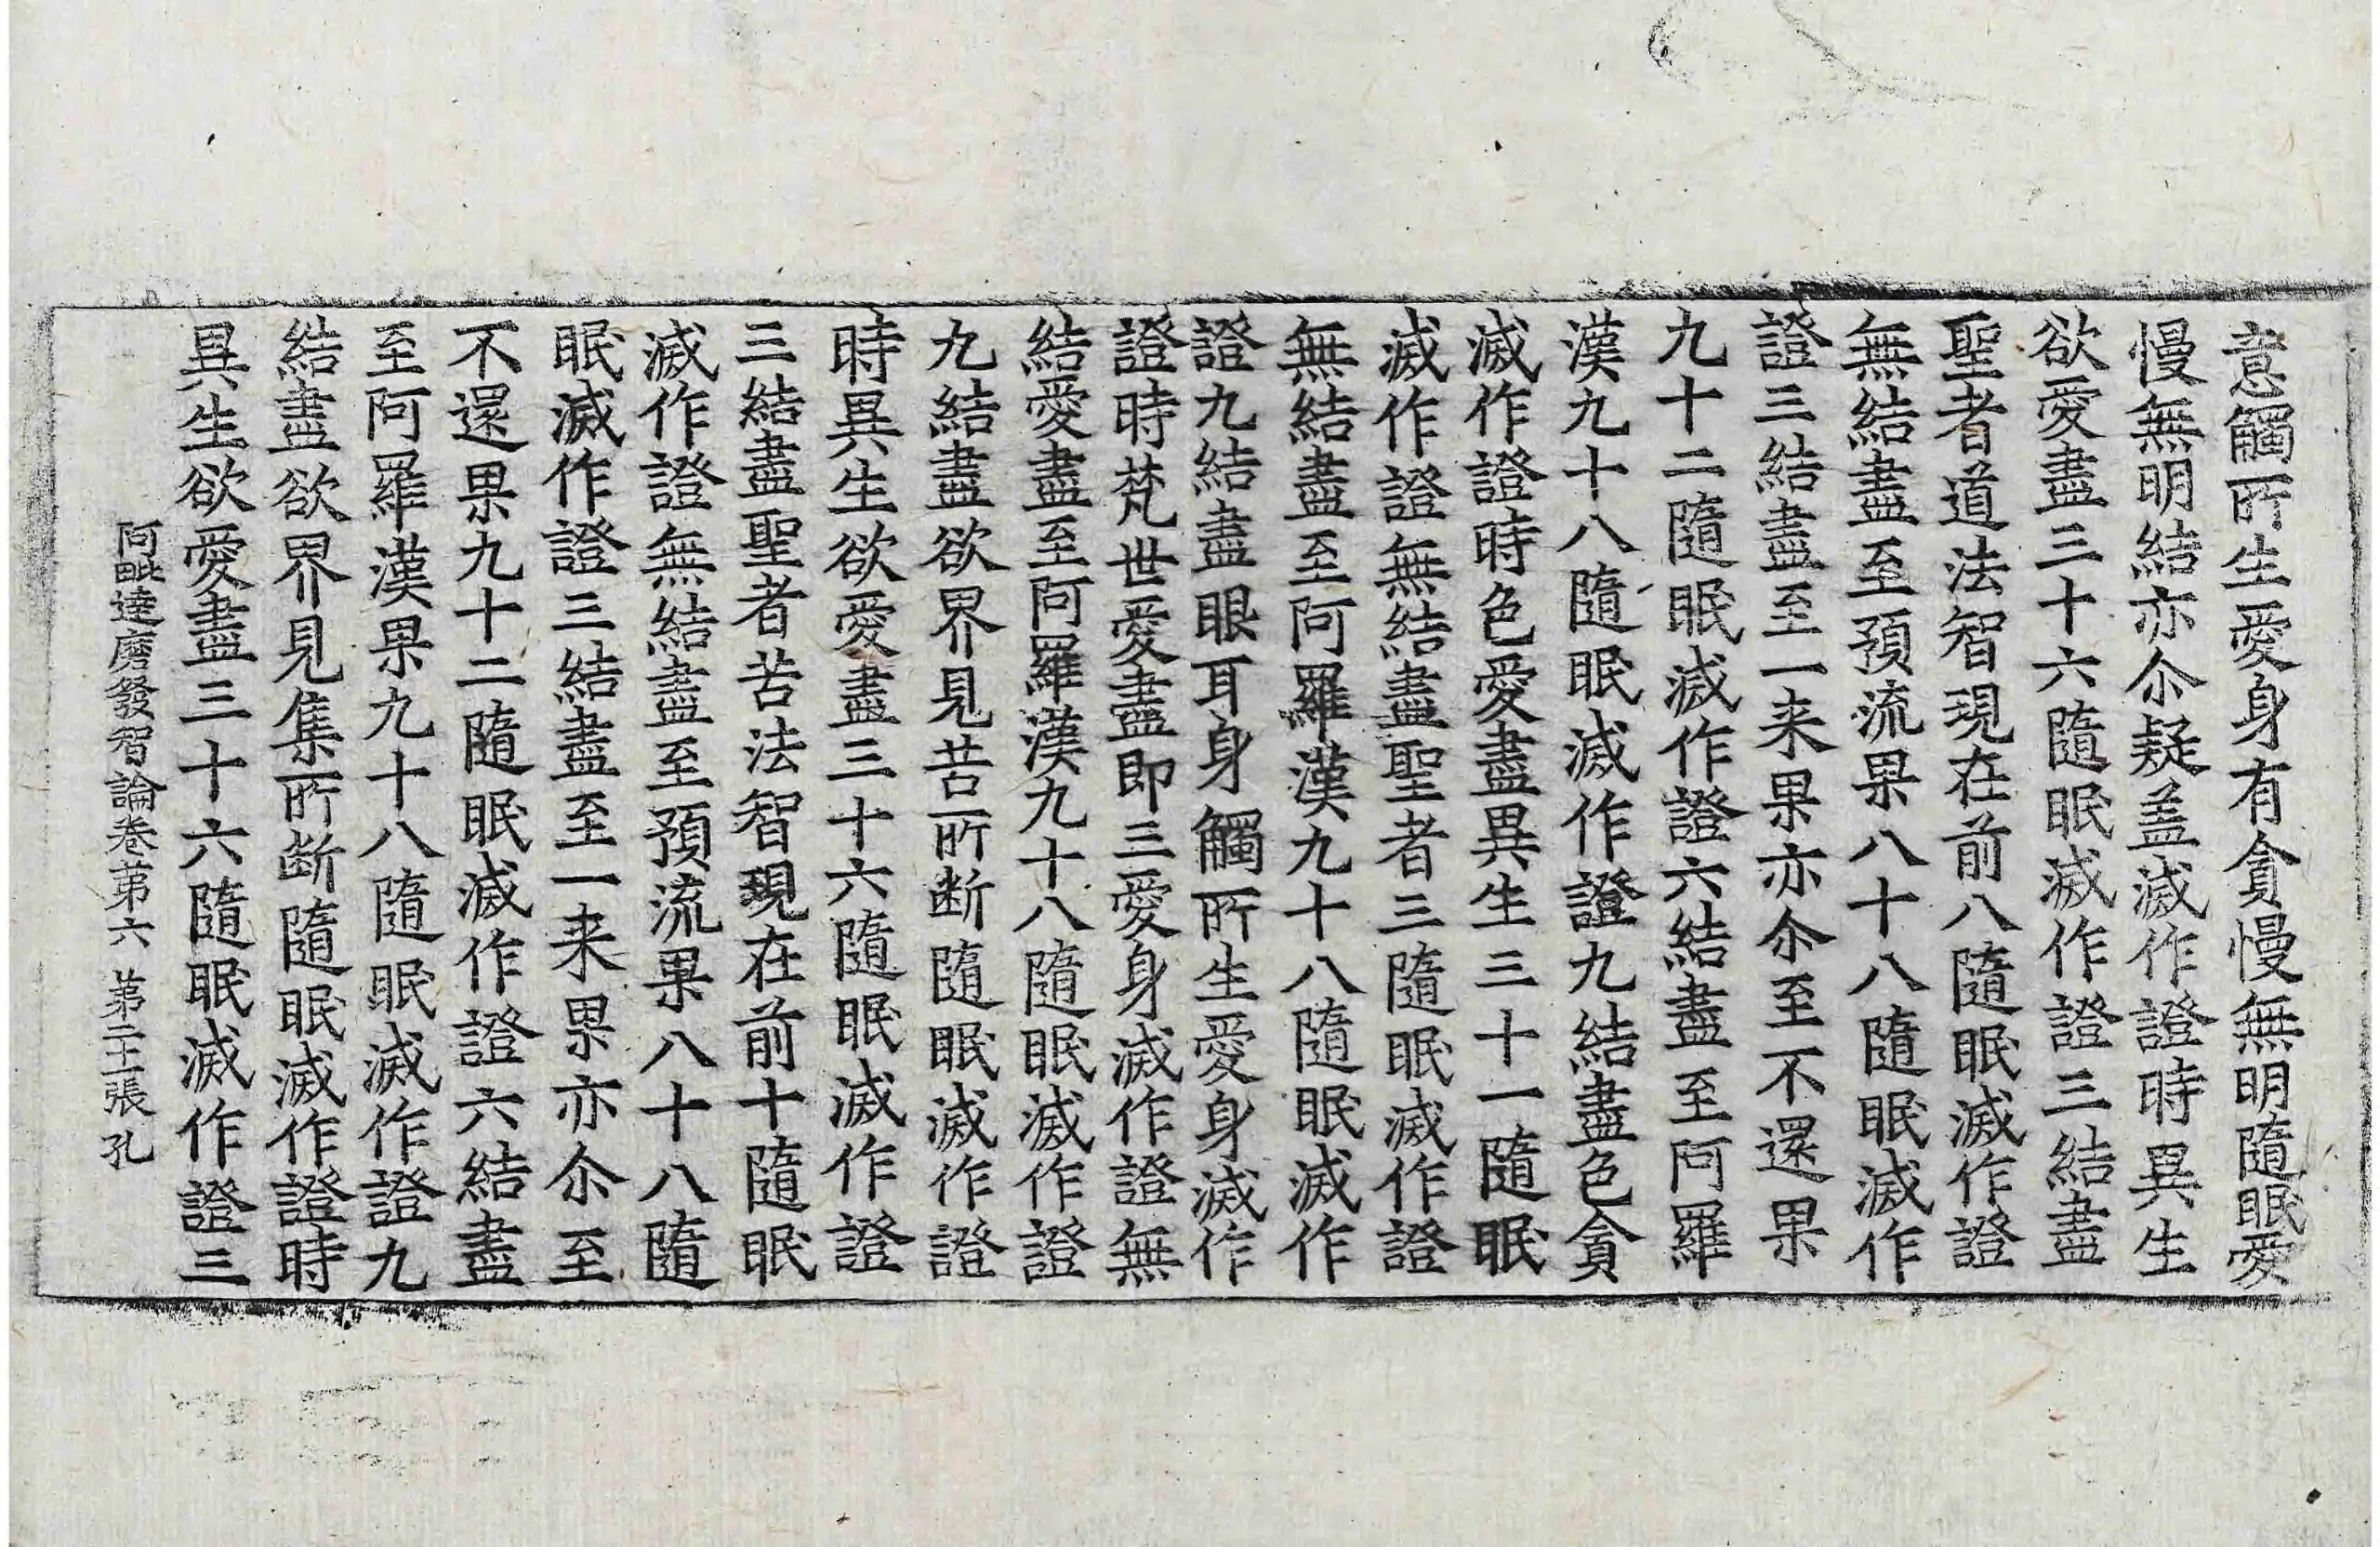 意觸所生愛身有貪慢無明隨眠愛
慢無明結亦尒疑盖滅作證時異生
欲愛盡三十六隨眠滅作證三結盡
聖者道法智現在前八隨眠滅作證
無結盡至預流果八十八隨眠滅作
證三結盡至一来果亦尒至不還果
九十二隨眠滅作證六結盡至阿羅
漢九十八隨眠滅作證九結盡色貪
滅作證時色愛盡異生三十一隨眠
滅作證無結盡聖者三隨眠滅作證
無結盡至阿羅漢九十八隨眠滅作
證九結盡眼耳身觸所生愛身滅作
證時梵世愛盡即三愛身滅作證無
結愛盡至阿羅漢九十八隨眠滅作證
九結盡欲界見苦所断隨眠滅作證
時異生欲愛盡三十六隨眠滅作證
三結盡聖者苦法智現在前十隨眠
滅作證無結盡至預流果八十八隨
眠滅作證三結盡至一来果亦尒至
不還果九十二隨眠滅作證六結盡
至阿羅漢果九十八隨眠滅作證九
結盡欲界見集所断隨眠滅作證時
異生欲愛盡三十六隨眠滅作證三
阿毗達磨發智論卷苐六 苐二十一張 孔